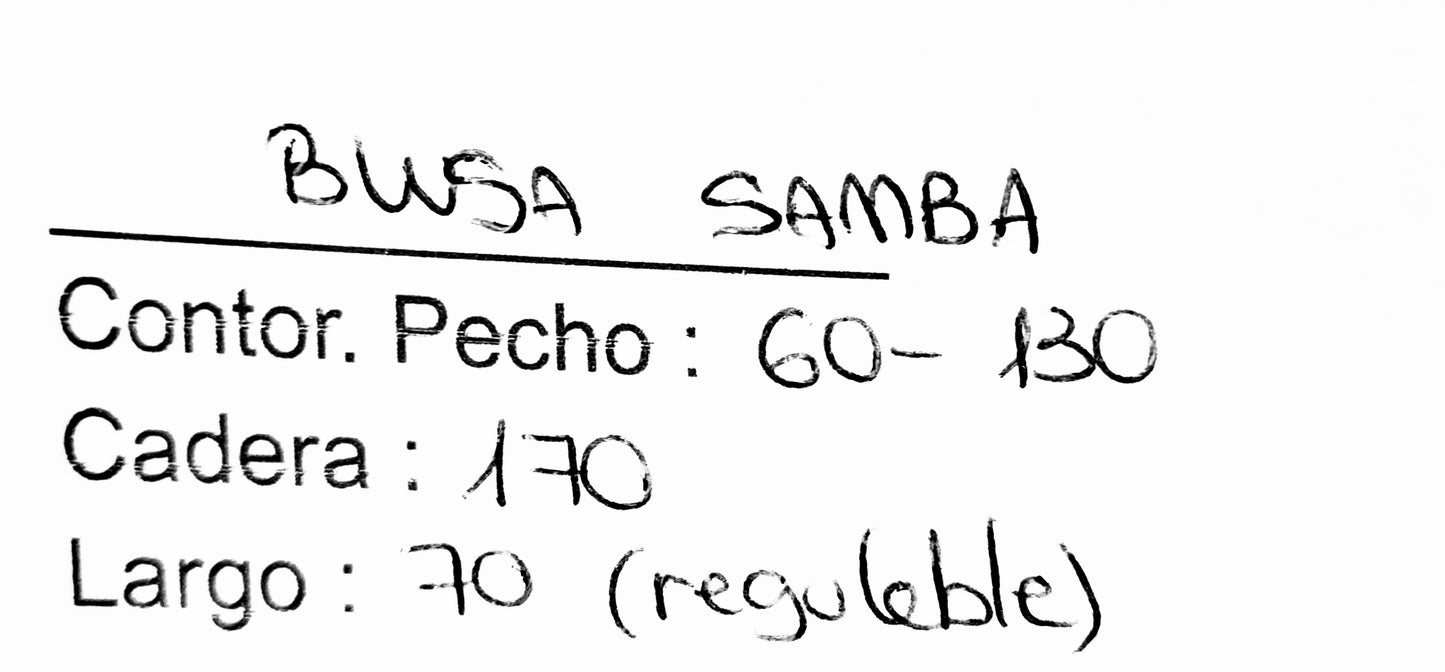 BLUSA SAMBA
Contor. Pecho : 60- 130
Cadera : 170
Largo : 70 (reguleble)